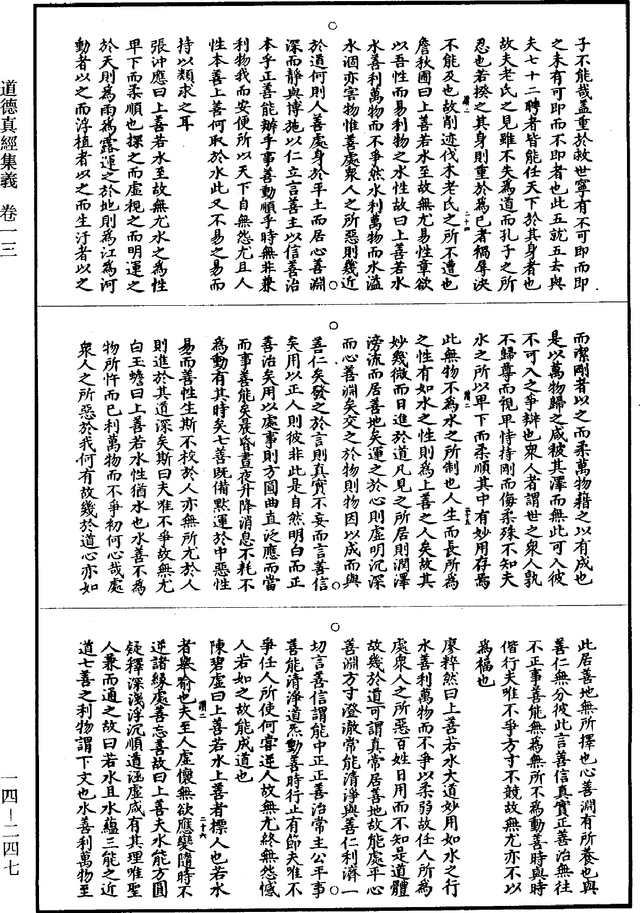 道德真經集義　卷一三
一四—二四七
子不能哉蓋重於故世寧有不可即而即
之未有可即而不即者也此五就五去與
夫七十二聘者皆能任天下於其身者也
故夫老氏之見雖不失為道而孔子之所
忍也若揆之其身則重於為己者禍辱決
不能及也故削迹伐木老氏之所不遭也
詹秋圃曰上善若水至故無尤易性章欲
以吾性而易利物之水性故曰上善若水
水善利萬物而不爭然水利萬物而水溢
水涸亦害物惟善處衆人之所惡則幾近
於道何則人善處身於平土而居心善淵
深而靜與博施以仁立言善主以信善治
本乎正善能辦乎事善動順乎時無非兼
利物我而安便所以天下自無怨尤且人
性本善上善何取於水此又不易之易而
持以類求之耳
張沖應曰上善若水至故無尤水之為性
早下而柔順也探之而虛視之而明運之
於天則為雨為露運之於地則為江為河
動者以之而浮植者以之而生汙者以之
而潔剛者以之而柔萬物藉之以有成也
是以萬物歸之咸被其澤而無此可入彼
不可入之爭辯也衆人者謂世之衆人孰
不歸尊而視卑恃持剛而侮柔殊不知夫
水之所以卑下而柔順其中有妙用存焉
此無物不為水之所制也人生而長所為
之性有如水之性則為上善之人矣故其
妙幾微而日進於道凡見之所居則潤澤
滂流而居善地矣運之於心則虛明沉深
而心善淵矣交之於物則物因以成而與
善仁矣發之於言則真實不妄而言善信
矣用以正人則彼非此是自然明白而正
善治矣用以處事則方圓曲直泛應而當
而事善能矣是昏晝夜升降消息不耗不
為動有其時矣七善既備黙運於中惡性
易而善性生斯不校於人亦無所尤於人
則進於其道深矣斯曰夫唯不爭故無尤
白玉蟾曰上善若水性猶水也水善不為
物所忤而已利萬物而不爭初何心哉處
衆人之所惡於我何有故幾於道心亦如
此居善地無所擇也心善淵有所養也與
善仁無分彼此言善信真實正善治無往
不正事善能無為無所不為動善時與時
偕行夫唯不爭方寸不競故無尤亦不以
為福也
廖粹然曰上善若水大道妙用如水之行
水善利萬物而不爭以柔弱故任人所為
處衆人之所惡百姓日用而不知是道體
故幾於道可謂真常居善地故能處平心
善淵方寸澄澈常能清淨與善仁利濟一
切言善信謂能中正正善治常主公平事
善能清淨道炁動善時行止有節夫唯不
爭任人所使何嘗逆人故無尤終無怨憾
人若如之故能成道也
陳碧虛曰上善若水上善者標人也若水
者舉喻也夫至人虛懷無欲應變隨時不
逆諸緣處善忘善故曰上善夫水能方圓
疑釋深淺浮沉順道涵虛咸有其理唯聖
人兼而通之故曰若水且水蘊三能之近
道七善之利物謂下文也水善利萬物至